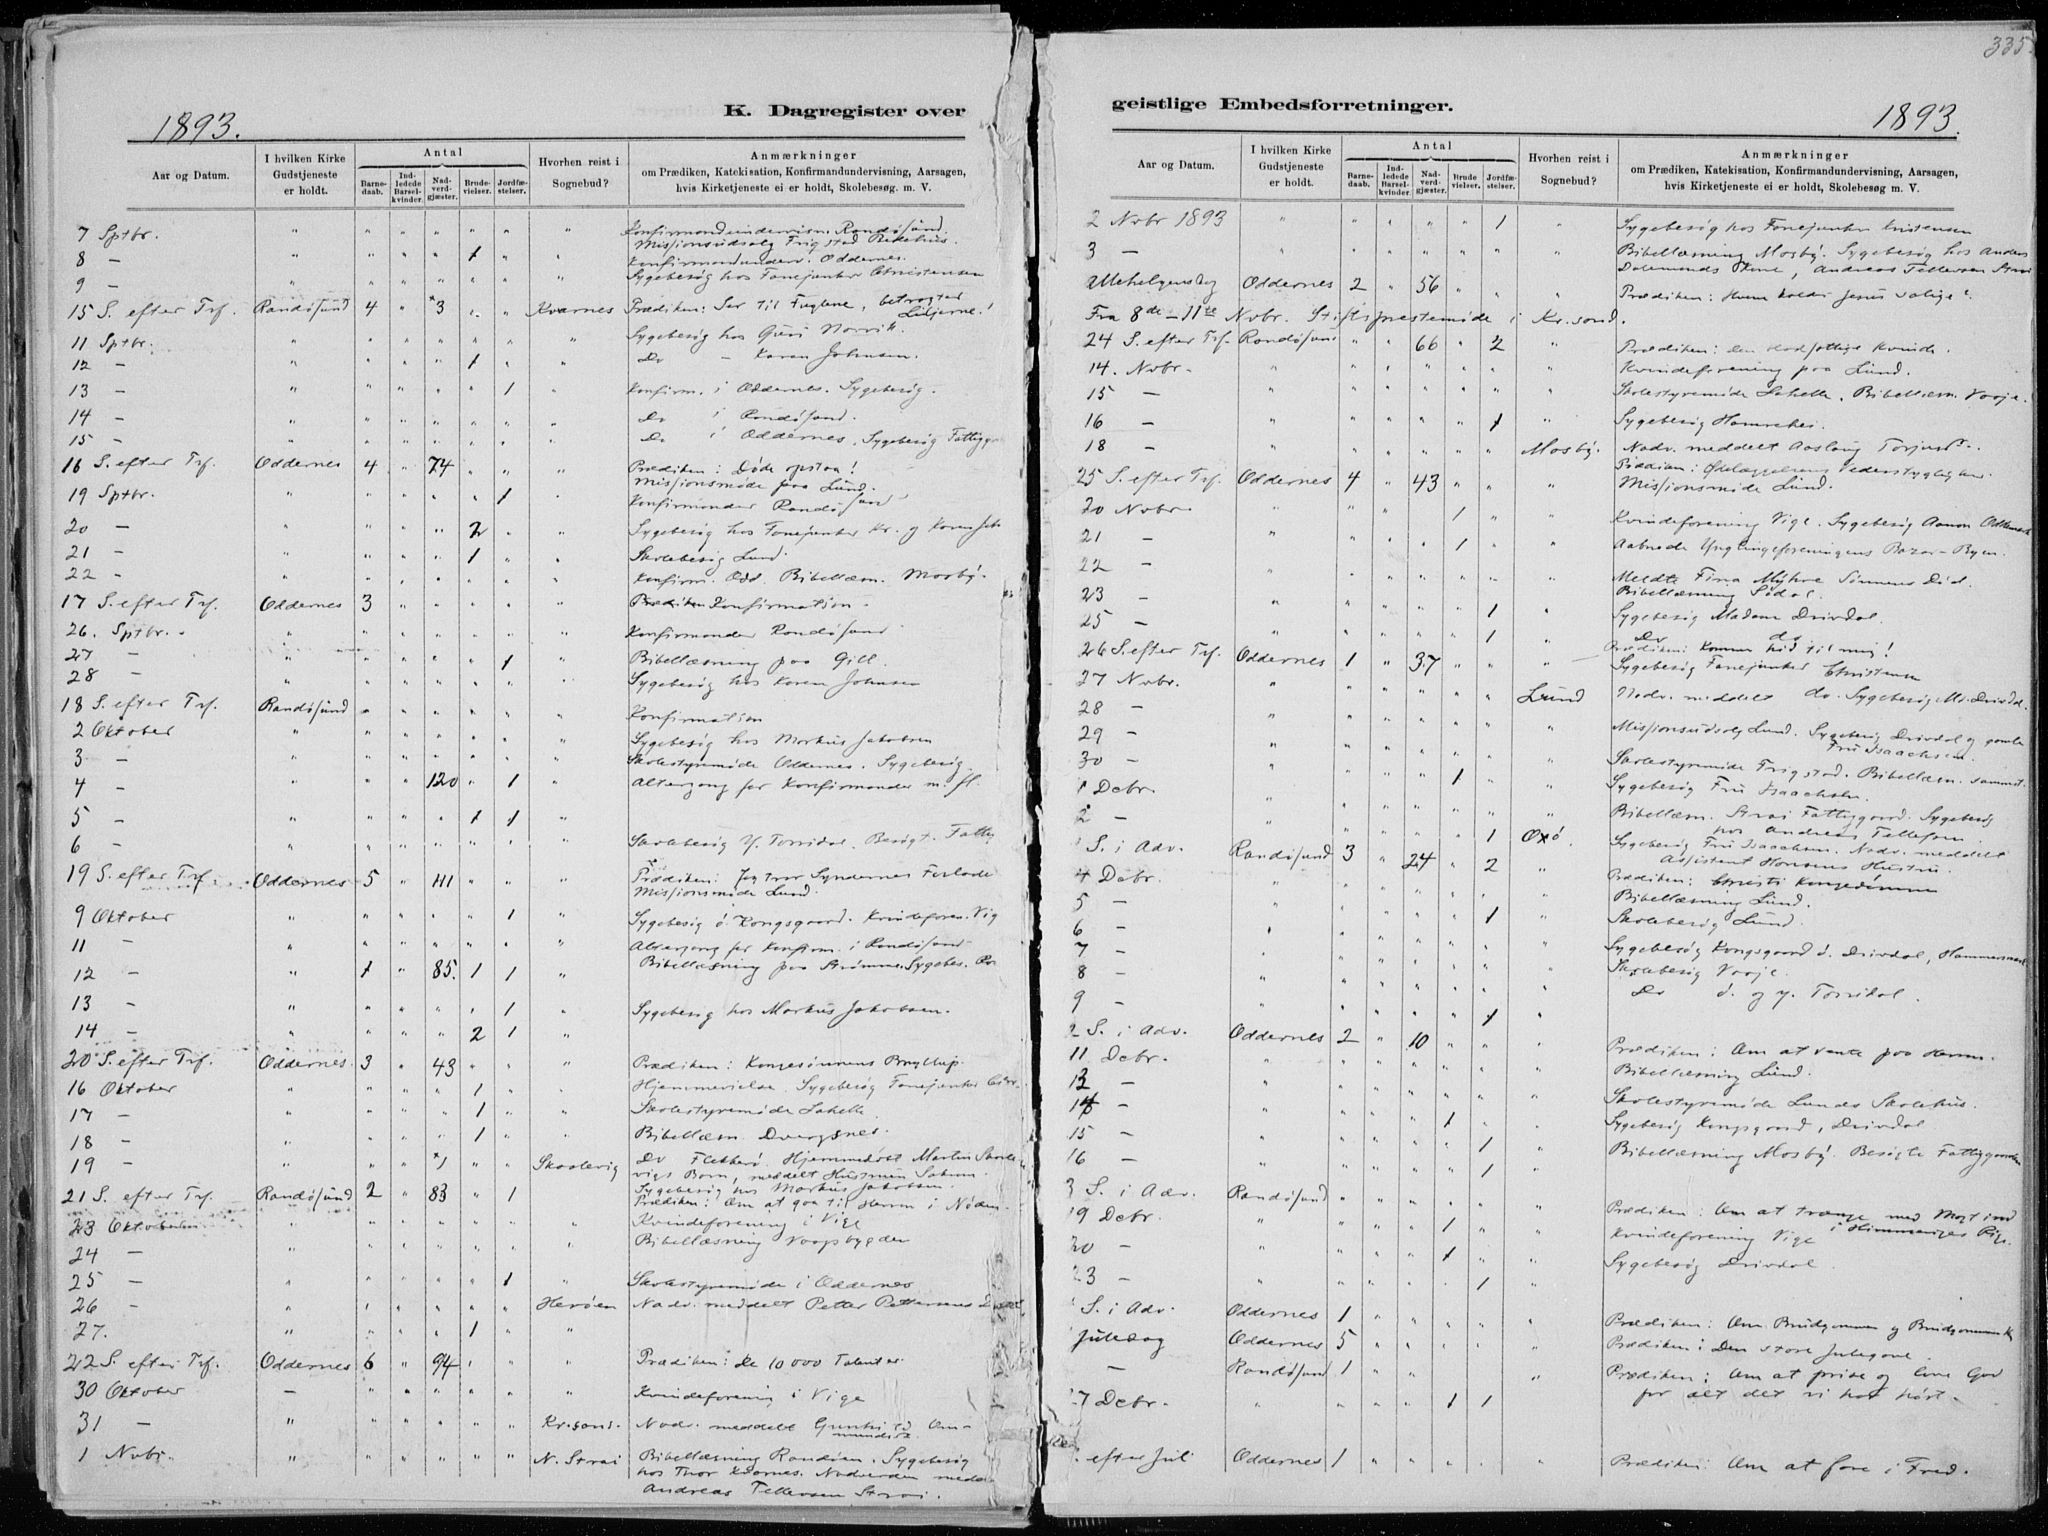 335
K. Dagregister over
1893.
Aar og Datum.
I hvilken Kirke Gudstjeneste er holdt.
Antal
Barnedaab.
Indledede Barselkvinder.
Nadverdgjæster.
Brudevielser.
Jordfæstelser.
Hvorhen reist i Sognebud?
Anmærkninger
om Prædiken, Katekisation, Konfirmandundervisning, Aarsagen,
hvis Kirketjeneste ei er holdt, Skolebesøg. m. V.
7 Sptbr. " " " " " " " Konfirmandundervisn. Randøsund.
Missionsudsalg Frigstad Bedehus.
8 — " " " " 1 " " Konfirmandunderv. Oddernes.
9 — " " " " " " " Sygebesøg hos Fanejunker Christensen
15 S. efter Trf. Randøsund 4 " *3 " " Kvarnes Prædiken: Ser til Fuglene, betragter
Liljerne!
11 Sptbr. " " " " " " " Sygebesøg hos Guri Norvik.
12 — " " " " 1 " " Do — Karen Johnsen.
13 — " " " " " 1 " Konfirm. i Oddernes. Sygebesøg.
14 — " " " " " " " Do i Randøsund.
15 — " " " " " " " Do i Oddernes. Sygebesøg Fattigg
16 S. efter Trf. Oddernes 4 " 74 " " " Prædiken: Døde opstaa!
Missionsmøde paa Lund.
19 Sptbr. " " " " " 1 " Konfirmander Randøsund
20 — " " " " 2 " " Sygebesøg hos Fanejunker Kr. og Karen Joh
21 — " " " " 1 " " Skolebesøg Lund.
22 — " " " " " " " Konfirm. Odd. Bibellæsn. Mosby.
17 S. efter Trf. Oddernes 3 " " " " " Konfirmation.
26. Sptbr. " " " " " " " Konfirmander Randøsund
27 — " " " " " 1 " Bibellæsning paa Gill.
28 — " " " " " " " Sygebesøg hos Karen Johnsen
18 S. efter Trf. Randøsund " " " " " " Konfirmation
2 Oktober " " " " " " " Sygebesøg hos Markus Jakobsen
3 — " " " " " " " Skolestyremøde Oddernes. Sygebesøg.
4 — " " " 120 " 1 " Altergang for Konfirmander m. fl.
5 — " " " " 1 1 "
6 — " " " " " " " Skolebesøg Y. Torridal. Besøgt. Fattig
19 S. efter Trf. Oddernes 5 " 41 " " " Prædiken: Jeg tror Syndernes Forlade
Missionsmøde Lund.
9 Oktober " " " " " 1 " Sygebesøg ø. Kongsgaard. Kvindeforen. Vig
11 — " " " " " " " Altergang for Konfirm. i Randøsund
12 — " 1 " 85. 1 1 " Bibellæsning paa Strømme. Sygebes.
13 — " " " " " 1 " Sygebesøg hos Markus Jakobsen.
14 — " " " " 2 1 "
20 S. efter Trf. Oddernes. 3 " 43 " " " Prædiken: Kongesønnens Bryllup.
16 Oktober " " " " 1 " " Hjemmevielse. Sygebesøg Fanejunker Chr.
17 — " " " " 1 " " Skolestyremøde Lahelle.
18 — " " " " 1 " " Bibellæsn. Dvergsnes.
19 — " " " *1 " " Skaalevig Do Flekkerø. Hjemmedøbt Martin Skaale
vigs Barn, meddelt Hustruen Sakram.
Sygebesøg hos Markus Jakobsen.
21 S. efter Trf. Randøsund 2 " 83 " 1 " Prædiken: Om at gaa til Herren i Nøden.
23 Oktober " " " " " " " Kvindeforening i Vige
24 — " " " " " " " Bibellæsning Vaagsbygden
25 — " " " " " 1 " Skolestyremøde i Oddernes
26 — " " " " " " Herøen Nadv. meddelt Petter Pettersens
27. " " " " 1 " "
22 S. efter Trf. Oddernes 6 " 94 " " " Prædiken: De 10 000 Talenter.
30 Oktober — " " " " " " Kvindeforening i Vige
31 — " " " " " " Kr.sand. Nadv. meddelt Gunhild Om-
mundsd.
1 Nvbr. " " " " " " N. Strai Bibellæsning Randøen. Sygebesøg
hos Thor Kvarnes. Nadverden medde
Andreas Tellefsen Strai.
geistlige Embedsforretninger.
1893.
Aar og Datum.
I hvilken Kirke Gudstjeneste er holdt.
Antal
Barnedaab.
Indledede Barselkvinder.
Nadverdgjæster.
Brudevielser.
Jordfæstelser.
Hvorhen reist i Sognebud?
Anmærkninger
om Prædiken, Katekisation, Konfirmandundervisning, Aarsagen,
hvis Kirketjeneste ei er holdt, Skolebesøg m. V.
2 Nvbr 1893 " " " " " 1 " Sygebesøg hos Fanejunker Kristensen
3 — " " " " " " " Bibellæsning Mosby. Sygebesøg hos Anders
Dalemands Kone, Andreas Tellefsen Strai
Allehelgensdag Oddernes 2 " 56 " " " Prædiken: Hvem kalder Jesus salige?
Fra 8de–11te Nvbr. Stiftsprestemøde i Kr.sand.
24 S. efter Trf. Randøsund " " 66 " 2 " Prædiken: Den blodsottige Kvinde.
14. Nvbr. " " " " " " " Kvindeforening paa Lund.
15 — " " " " " " " Skolestyremøde Lahelle. Bibellæsn. Vraje.
16 — " " " " " 1 " Sygebesøg Hamrehei.
18 — " " " " " " Mosby. Nadv. meddelt Aaslaug Torjusd.
25 S. efter Trf. Oddernes 4 " 43 " " " Prædiken: Ødelæggelsens Vederstyggelighed
Missionsmøde Lund.
20 Nvbr. " " " " 1 " " Kvindeforening Vige. Sygebesøg Aanon Oddernes
21 — " " " " 1 " " Aabnede Ynglingeforeningens Bazar–Byen.
22 — " " " " " " " Meldte Fina Myhre Sønnens Død.
23 — " " " " " 1 " Bibellæsning Sødal.
25 — " " " " " 1 " Sygebesøg Madam Drivdal.
Do do
26 S. efter Trf. Oddernes 1 " 37 " " " Prædiken: Kommer hid til mig!
27 Nvbr. " " " " " " " Sygebesøg Fanejunker Christensen
28 — " " " " " " Lund Nadv. meddelt do. Sygebesøg M. Drivdal.
29 — " " " " " " " Missionsudsalg Lund. Sygebesøg Drivdal og gamle
Fru Isaachsen.
30 — " " " " " " " Skolestyremøde Frigstad. Bibellæsn. sammst.
1 Dcbr. " " " " 1 " " Sygebesøg Fru Isaachsen.
2 — " " " " " 1 Oxø. Bibellæsn. Strai Fattiggaard. Sygebesøg
hos Andreas Tellefsen
Sygebesøg Fru Isaachsen. Nadv. meddelt
Assistent Hansens Hustru.
1 S. i Adv. Randøsund 3 " 24 " 2 " Prædiken: Christi Kongedømme
4 Dcbr. " " " " " " " Bibellæsning Lund.
5 — " " " " " 1 " Skolebesøg Lund.
6 — " " " " " " " Sygebesøg Kongsgaard ø. Drivdal, Hammersmark
7 — " " " " " " "
8 — " " " " " " " Skolebesøg Vraje.
9 — " " " " " 1 " Do ø. og y. Torridal.
2 S. i Adv. Oddernes 2 " 10 " " " Prædiken: Om at vente paa Herren.
11 Dcbr. " " " " " " " Bibellæsning Lund.
12 — " " " " " " " Skolestyremøde Lunds Skolehus.
14 — " " " " 1 " " Sygebesøg Kongsgaard, Drivdal
15 — " " " " " 1 " Bibellæsning Mosby. Besøgte Fattiggaarden
16 — " " " " " 1 "
3 S. i Adv. Randøsund " " " " " " Prædiken: Om at trænge med Magt ind
i Himmeriges Rige.
19 Dcbr. " " " " 1 " " Kvindeforening Vige
20 — " " " " 1 " " Sygebesøg Drivdal.
23 — " " " " " 1 "
S. i Adv. Oddernes 1 " " " " " Prædiken: Om Brudgommen og Brudgommens
Juledag Oddernes 5 " " " " " Prædiken: Den store Julegave.
— Randøsund 1 " " " " " Prædiken: Om at prise og love Gud
for alt det vi har hørt.
7 Dcbr. " " " " 1 1
efter Jul Oddernes 1 " " " " " Prædiken: Om at fare i Fred.